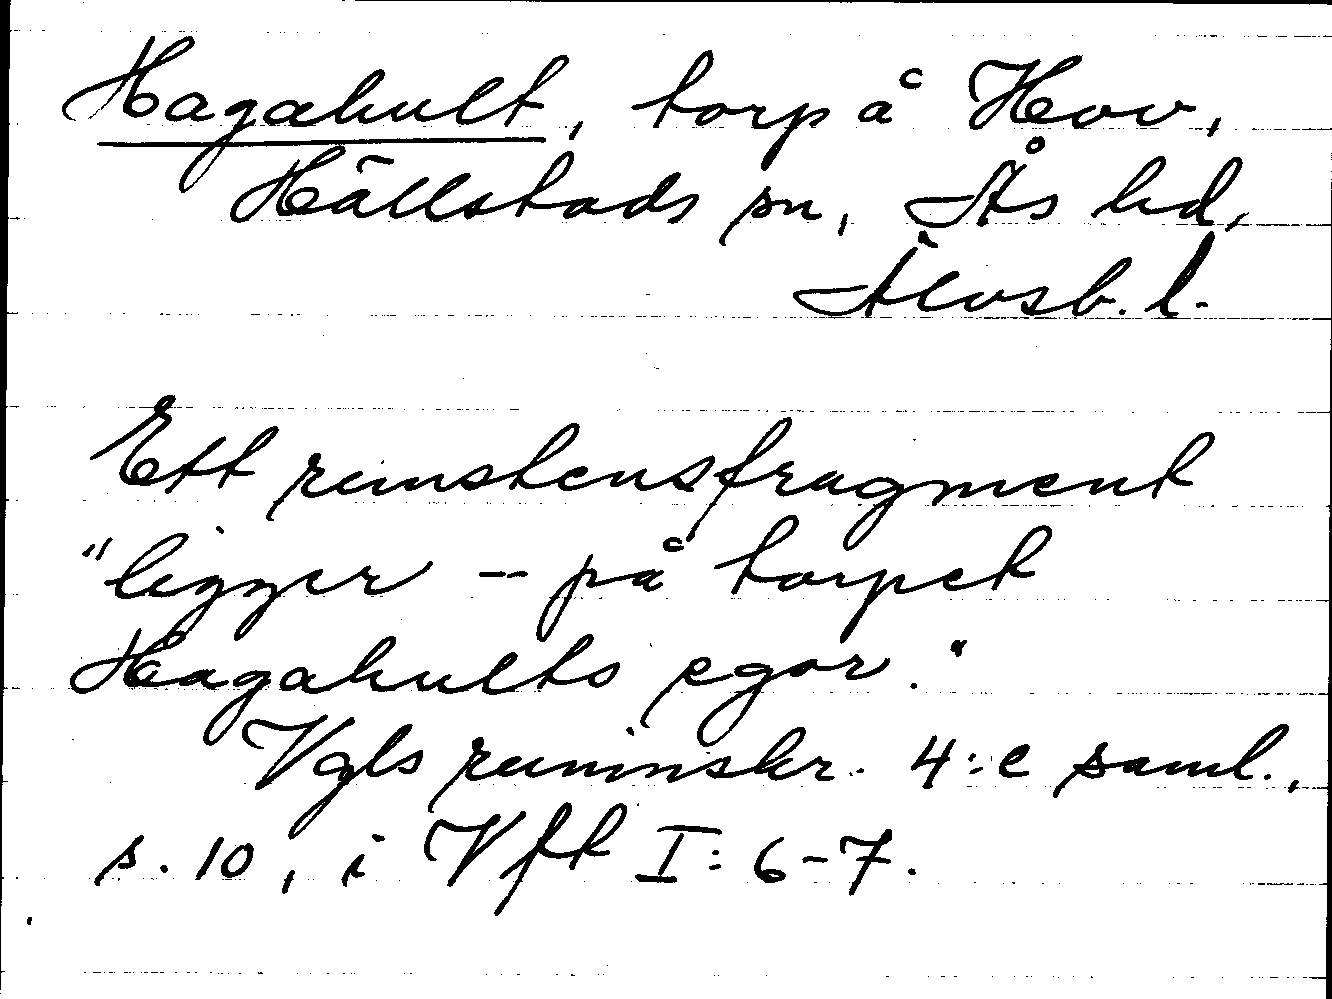 Hagahult, torp å Hov,
Hällstads sn, Ås hd,
Älvsb. l.
Ett runstensfragment
"ligger -- på torpet
Hagahults egor."
Vgls runinskr. 4:e saml.,
s. 10, i Vft I: 6-7.